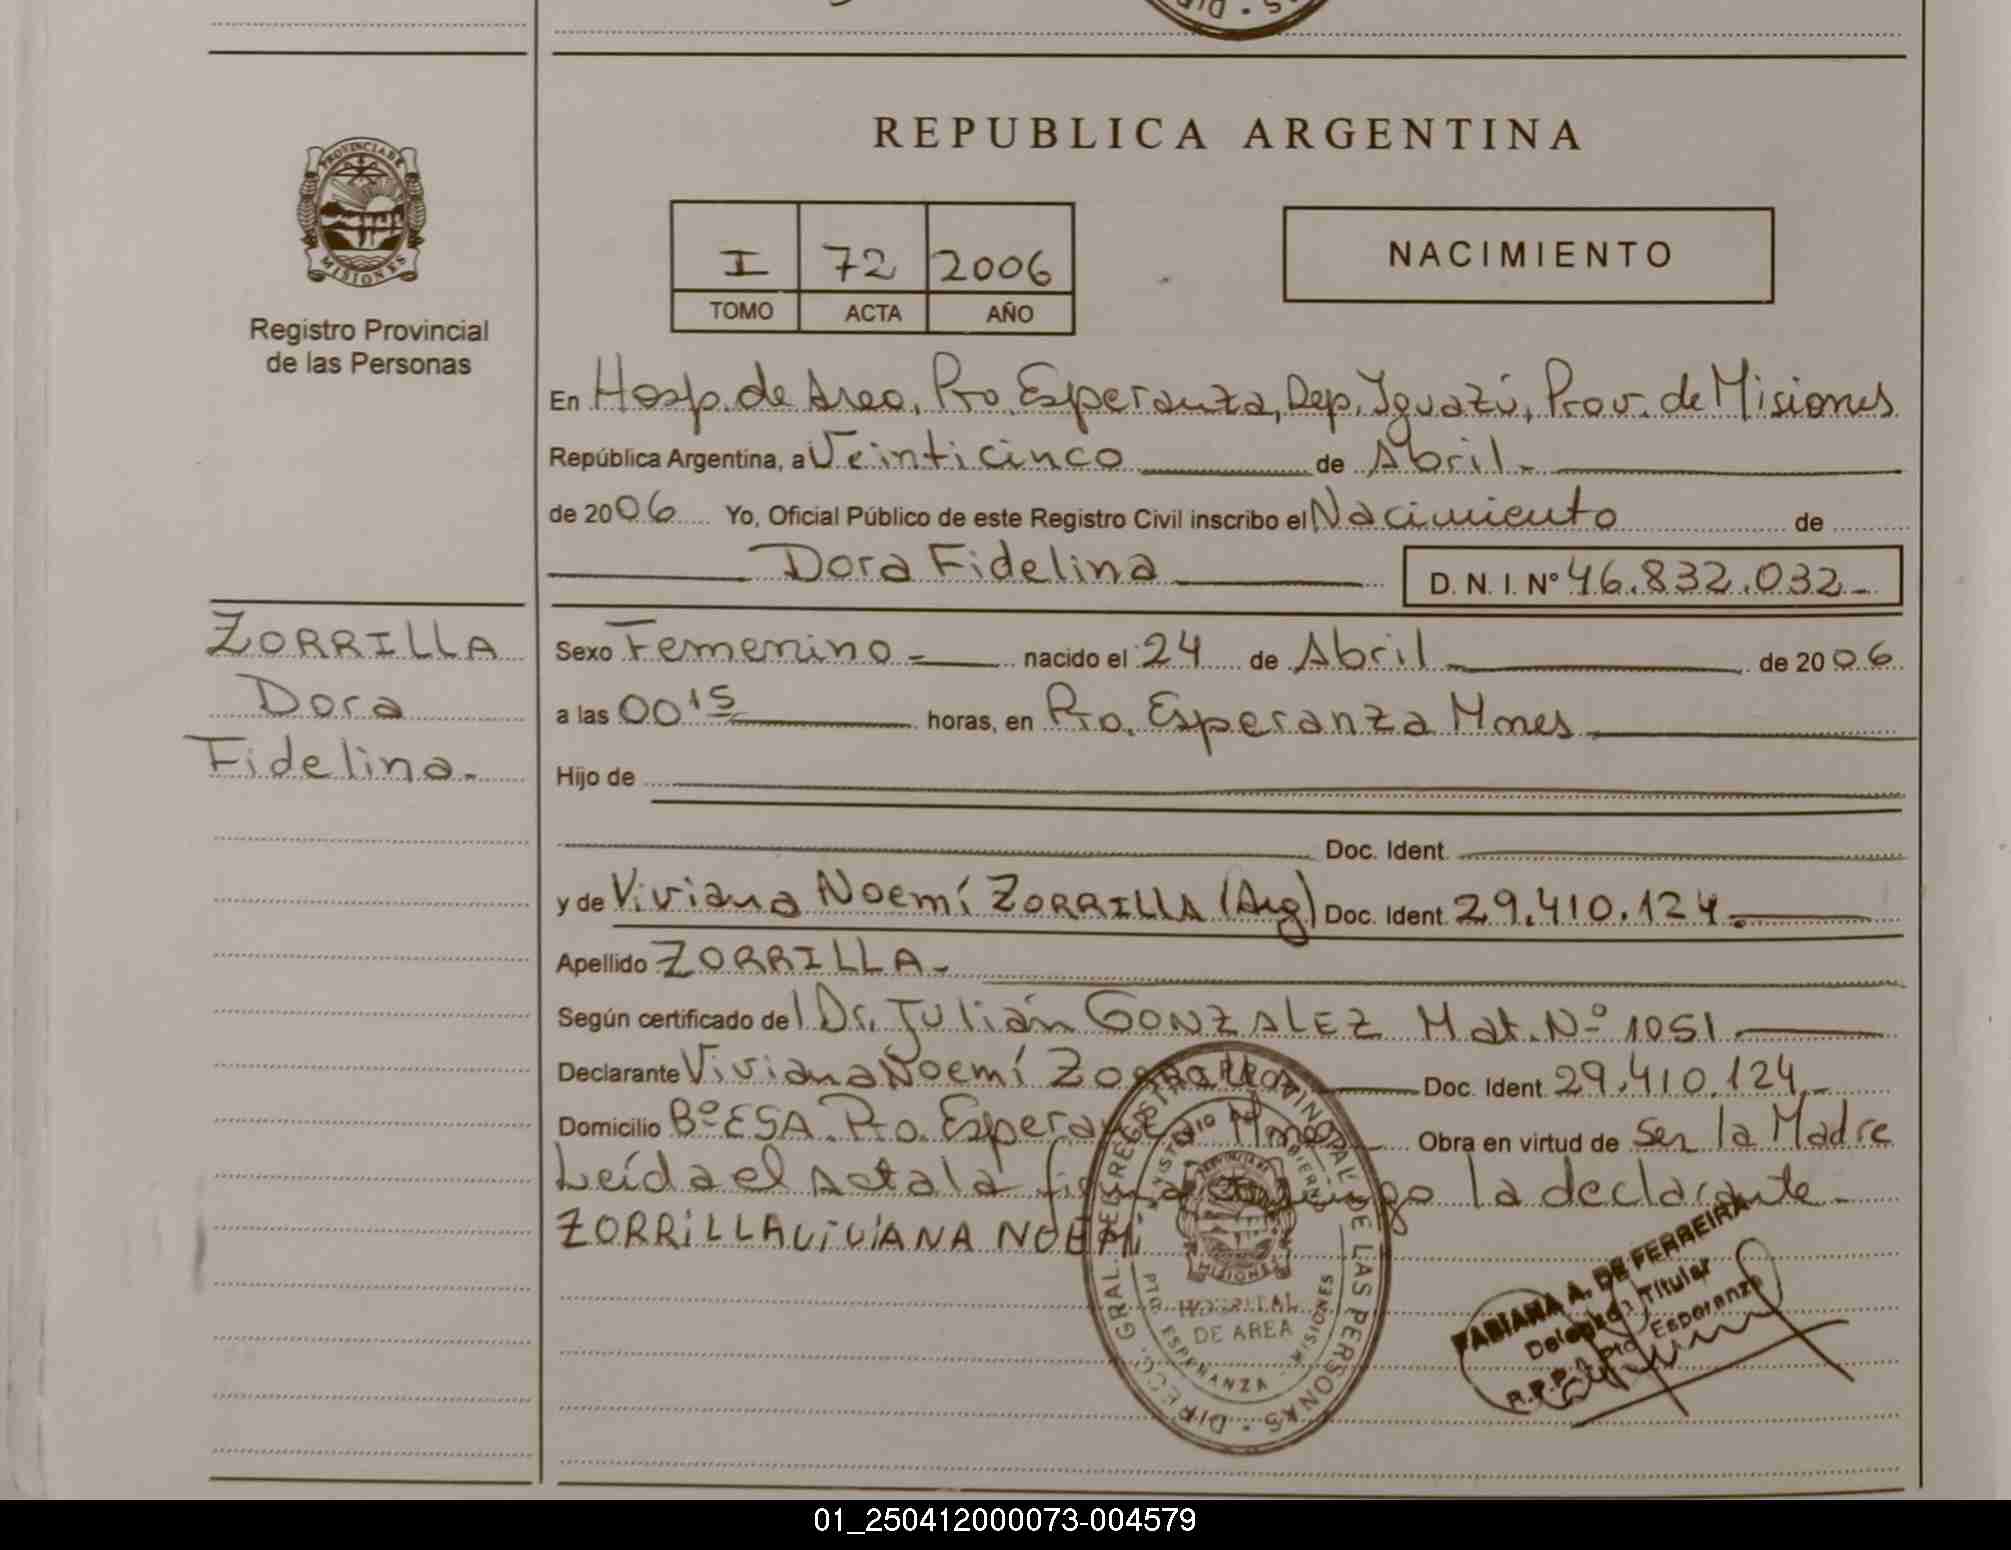 REPUBLICA ARGENTINA
PROVINCIA DE MISIONES
Registro Provincial
de las Personas
I 72 2006
TOMO ACTA AÑO
NACIMIENTO
En Hosp. de Area, Pto. Esperanza, Dep. Iguazú, Prov. de Misiones
República Argentina, a Veinticinco de Abril.-
de 2006 Yo, Oficial Público de este Registro Civil inscribo el Nacimiento de
Dora Fidelina D. N. I. Nº 46.832.032-
ZORRILLA
Dora
Fidelina.-
Sexo Femenino - nacido el 24 de Abril de 2006
a las 00 15 horas, en Pto. Esperanza Mnes
Hijo de
Doc. Ident.
y de Viviana Noemí ZORRILLA (Arg) Doc. Ident. 29.410.124.-
Apellido ZORRILLA-
Según certificado del Dr. Julián GONZALEZ Mat. Nº 1051
Declarante Viviana Noemí Zorrilla Doc. Ident. 29.410.124.-
Domicilio Bº ESA. Pto. Esperanza Mnes Obra en virtud de Ser la Madre
Leída el Acta la firma conmigo la declarante-
ZORRiLLA ViViANA NOEMi
DIRECC. GRAL. DEL REGISTRO PROVINCIAL DE LAS PERSONAS
MINISTERIO DE GOBIERNO
PROVINCIA DE MISIONES
HOSPITAL
DE AREA
PTO. ESPERANZA - MISIONES
FABIANA A. DE FERREIRA
Delegada Titular
R.P.P. Pto Esperanza
01_250412000073-004579